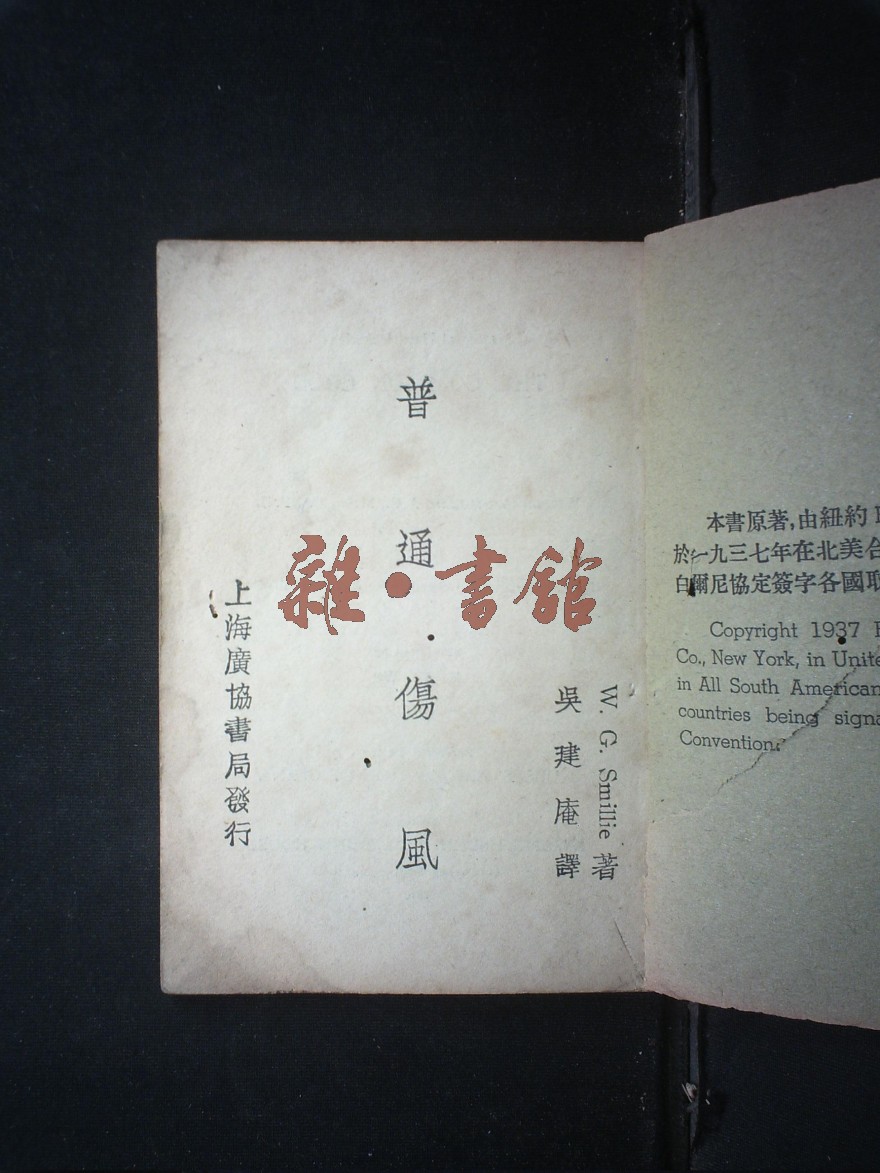 W. G. Smillie 著
吳建庵譯
普通傷風
上海廣協書局發行
雜·書館
本書原著,由紐約
於一九三七年在北美合
白爾尼協定簽字各國取
Copyright 1937
Co., New York, in Unite
in All South American
countries being signa
Convention.